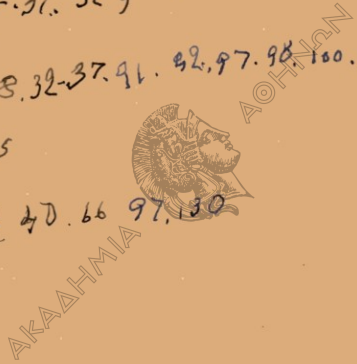 8.32-37.91. 92.,97.98.100.
5
40.66 97.130
ΑΚΑΔΗΜΙΑ ΑΘΗΝΩΝ